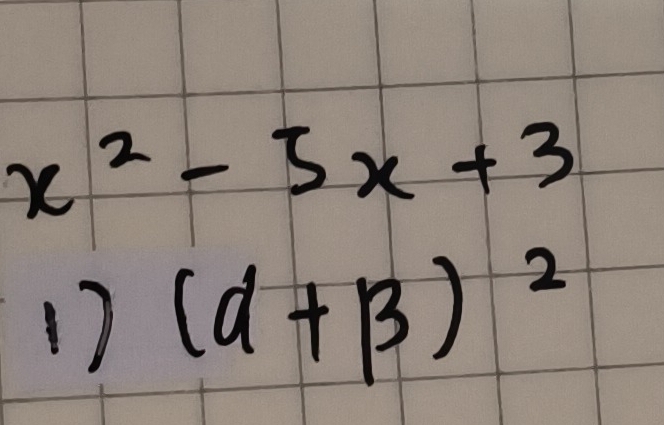 x² - 5x + 3
1) (α + β)²